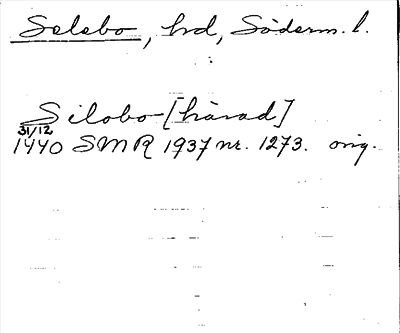 Selebo, hd, Söderm. l.
Silobo [härad]
31/12
1440 SMR 1937 nr. 1273. orig.